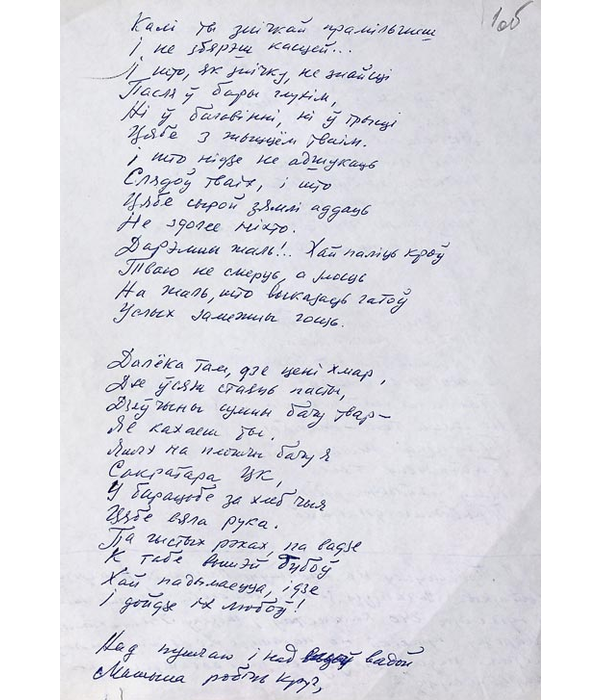 1об
Калі ты знічкай прамільгнеш
І не збярэш касцей...
І што, як знічку, не знайсці
Пасля ў бары глухім,
Ні ў багавінні, ні ў трысці
Цябе з жыццём тваім.
І што нідзе не адшукаць
Слядоў тваіх, і што
Цябе сырой зямлі аддаць
Не здолее ніхто.
Дарэмны жаль!.. Хай паліць кроў
Тваю не смерць, а злосць
На жаль, што выказаць гатоў
Услых замежны госць.
Далёка там, дзе цені хмар,
Дзе ўсяж стаяць пасты,
Дзяўчыны сумны бачу твар —
Яе кахаеш ты.
на плошчы бачу я
Сакратара ЦК,
У барацьбе за хлеб чыя
Цябе вяла рука.
Па чыстых рэках, па вадзе
К табе вышэй дубоў
Хай падымаецца, ідзе
І дойдзе іх любоў!
Над пушчаю і над вадой
Машына робіць круг,